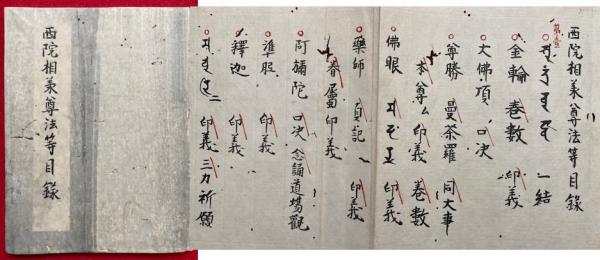 西院相承尊法等目錄
西院相承尊法等目錄
一結
金輪 卷數 印義
大佛頂 口决
尊勝 曼荼羅 同大事
本尊 印義 卷數
佛眼 印義
藥師 印義
眷屬印義
阿彌陀 口决 念誦道場觀
準胝 印義
釋迦 印義
印義 三力祈願